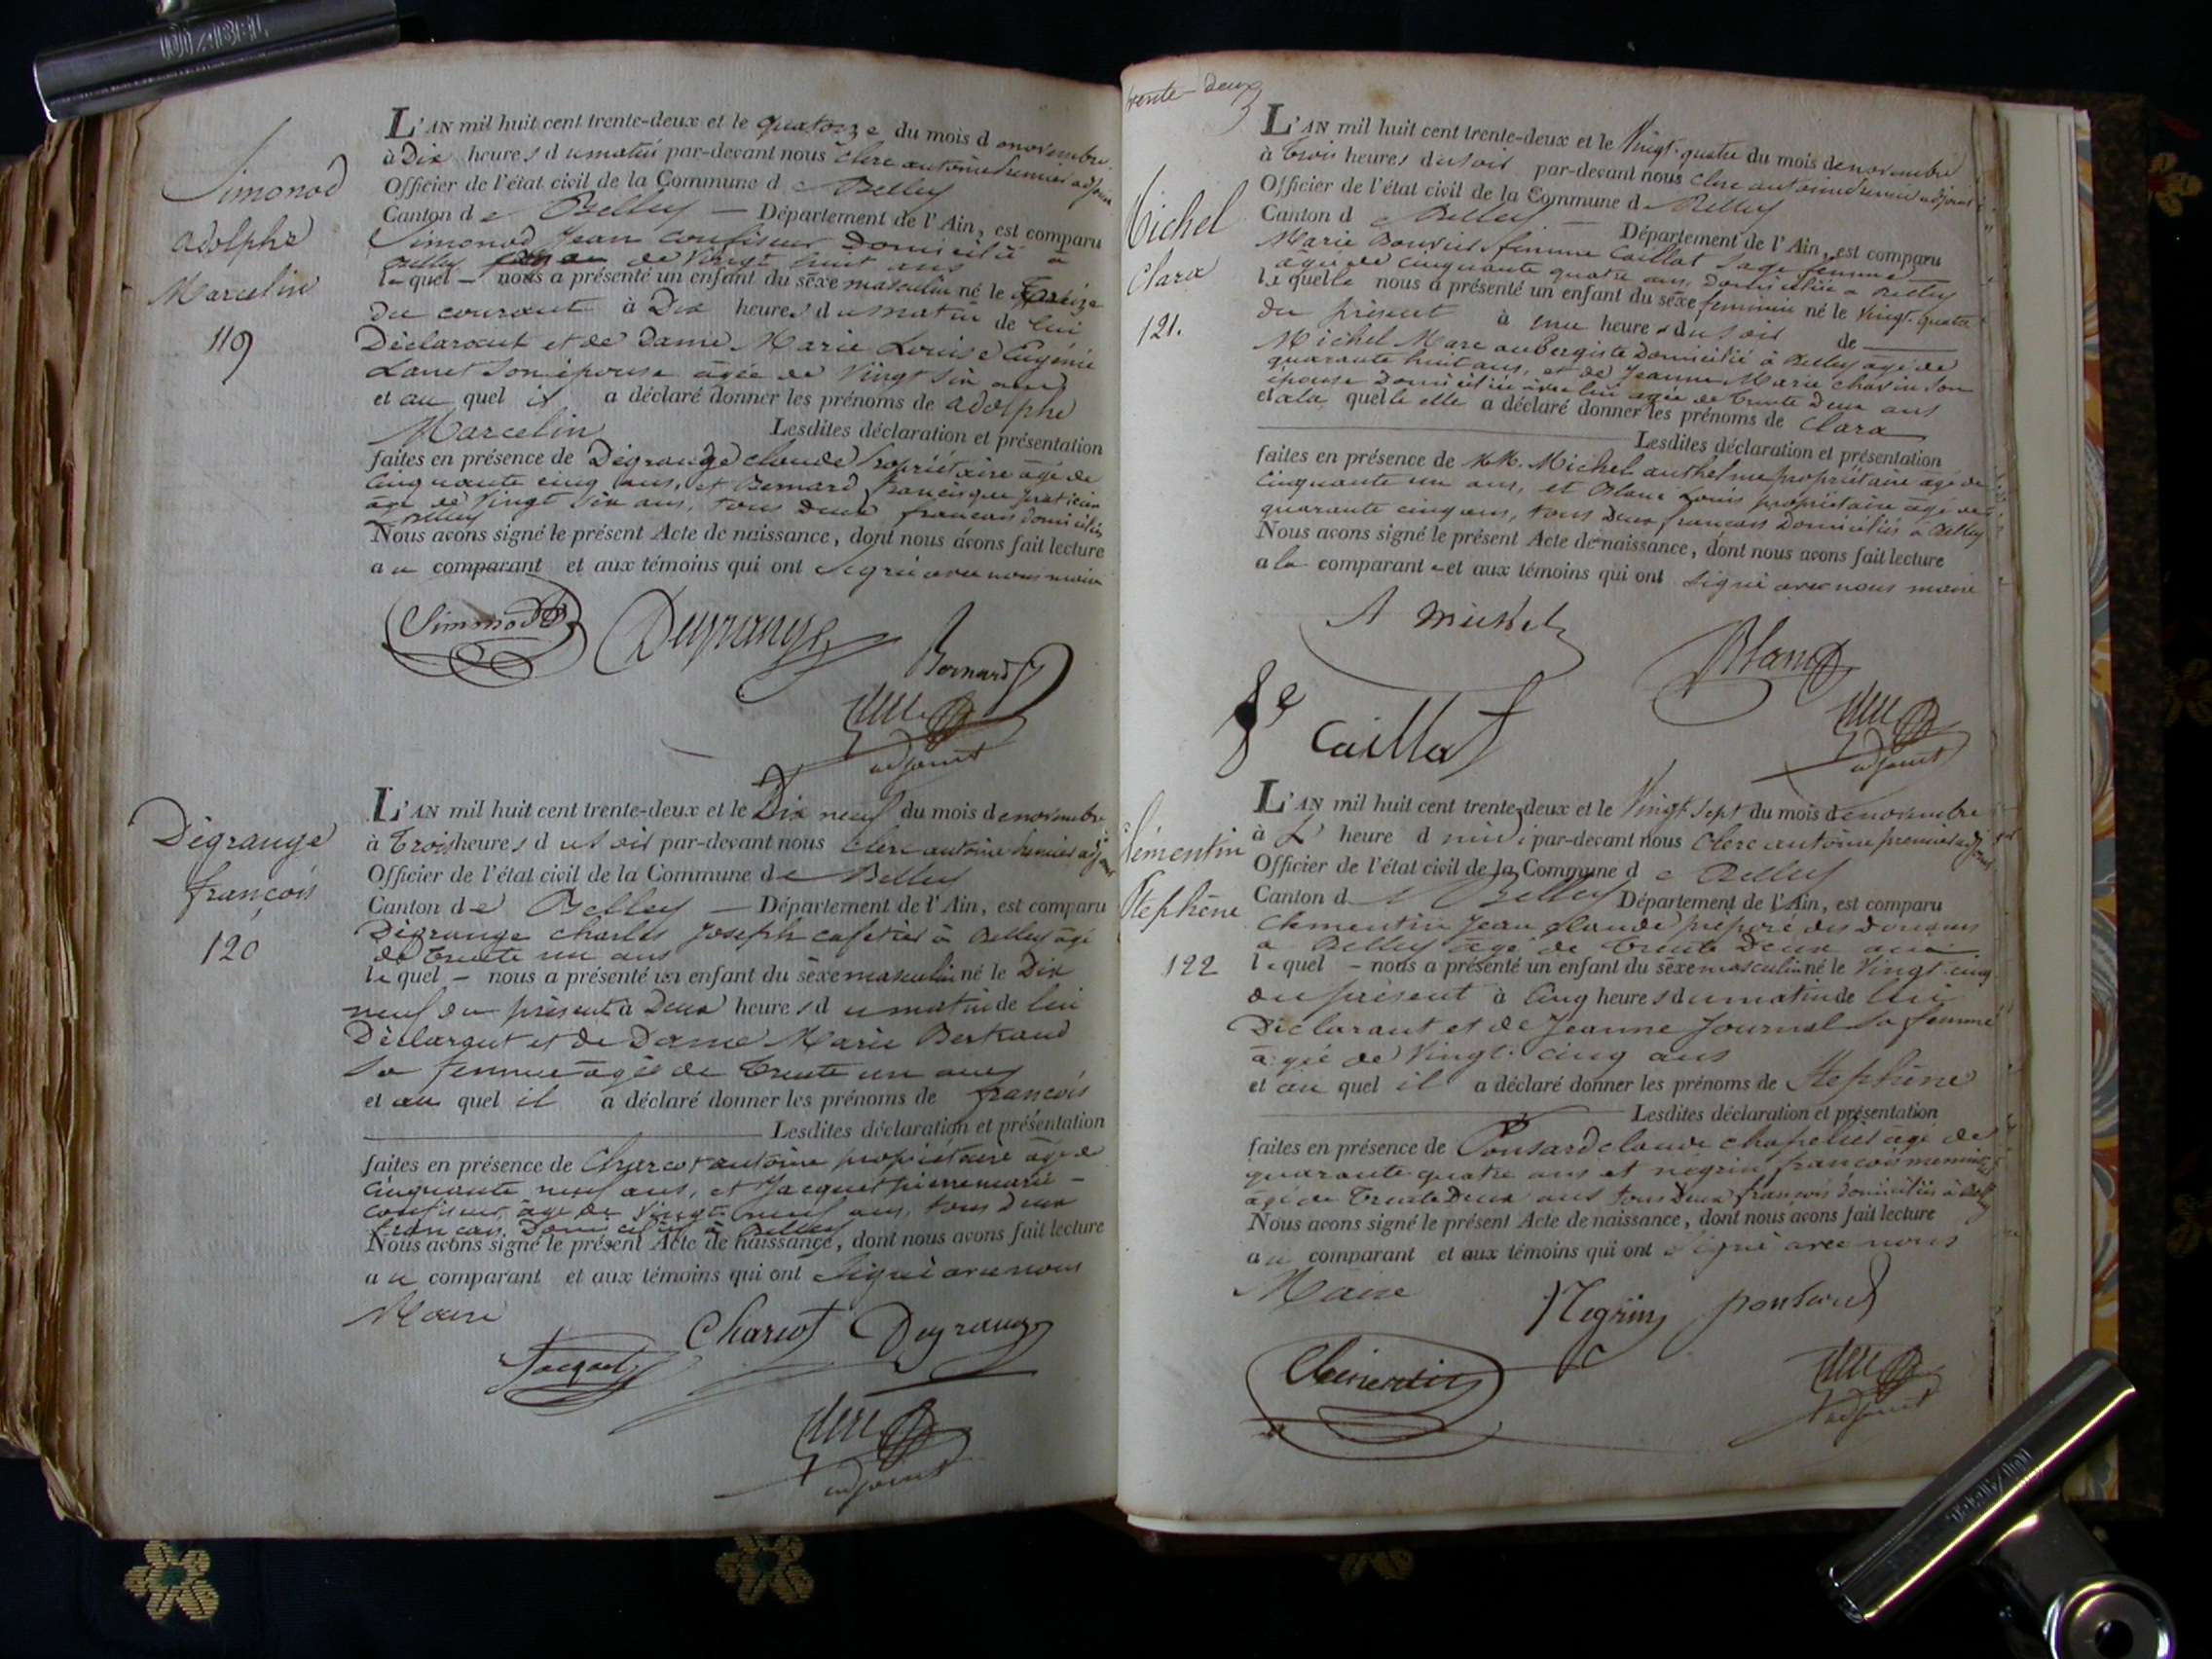 Simonod
adolphe
Marcelin
119
L'AN mil huit cent trente-deux et le quatorze du mois de novembre
à Dix heures du matin par-devant nous clerc antoine premier adjoint
Officier de l'état civil de la Commune de Belley
Canton de Belley — Département de l'Ain, est comparu
Simonod Jean confiseur Domicilié à
Belley de Vingt huit ans
lequel — nous a présenté un enfant du sexe masculin né le treize
du courant à Dix heures du matin de lui
Déclarant et de Dame Marie Louise Eugénie
son épouse agée de Vingt six ans
et au quel il a déclaré donner les prénoms de adolphe
Marcelin Lesdites déclaration et présentation
faites en présence de Dégrange claude propriétaire âgé de
cinquante cinq ans, et Bernard francisque praticien
âgé de Vingt six ans, tous deux français domiciliés
à Belley
Nous avons signé le présent Acte de naissance, dont nous avons fait lecture
au comparant et aux témoins qui ont signé avec nous maire
Simonod Degrange
Bernard
clerc
adjoint
Dégrange
françois
120
L'AN mil huit cent trente-deux et le Dix neuf du mois de novembre
à trois heures du soir par-devant nous clerc antoine premier adjoint
Officier de l'état civil de la Commune de Belley
Canton de Belley — Département de l'Ain, est comparu
Dégrange charles Joseph cafetier à Belley âgé
de trente un ans
lequel — nous a présenté un enfant du sexe masculin né le Dix
neuf du présent à Deux heures du matin de lui
Déclarant et de Dame Marie Bertrand
sa femme agée de trente un ans
et au quel il a déclaré donner les prénoms de françois
Lesdites déclaration et présentation
faites en présence de Charcot antoine propriétaire âgé de
cinquante neuf ans, et Jacquet pierre marie —
confiseur, âgé de Vingt neuf ans, tous deux
français Domiciliés à Belley
Nous avons signé le présent Acte de naissance, dont nous avons fait lecture
au comparant et aux témoins qui ont signé avec nous
Maire
Charcot Degrange
Jacquet
clerc
adjoint
trente-deux
Michel
Clara
121.
L'AN mil huit cent trente-deux et le Vingt-quatre du mois de novembre
à trois heures du soir par-devant nous clerc antoine premier adjoint
Officier de l'état civil de la Commune de Belley
Canton de Belley — Département de l'Ain, est comparu
Marie Bouvier femme Caillat sage femme
agée de cinquante quatre ans, Domiciliée à Belley
laquelle nous a présenté un enfant du sexe féminin né le Vingt-quatre
du présent à une heure du soir de
Michel Marc aubergiste Domicilié à Belley âgé de
quarante huit ans, et de Jeanne Marie son
épouse Domiciliée avec lui agée de trente Deux ans
et à la quelle elle a déclaré donner les prénoms de Clara
Lesdites déclaration et présentation
faites en présence de MM. Michel anthelme propriétaire âgé de
cinquante un ans, et Blanc Louis propriétaire âgé de
quarante cinq ans, tous Deux français Domiciliés à Belley
Nous avons signé le présent Acte de naissance, dont nous avons fait lecture
a la comparante et aux témoins qui ont signé avec nous maire
A Michel
Blanc
fe Caillat
clerc
adjoint
Clémentin
Stephène
122
L'AN mil huit cent trente-deux et le Vingt sept du mois de novembre
à L' heure de midi par-devant nous Clerc antoine premier adjoint
Officier de l'état civil de la Commune de Belley
Canton de Belley Département de l'Ain, est comparu
Clementin Jean Claude préposé des Douanes
à Belley âgé de trente Deux ans
lequel — nous a présenté un enfant du sexe masculin né le Vingt-cinq
du présent à Cinq heures du matin de lui
Déclarant et de Jeanne Journel sa femme
agée de Vingt-cinq ans
et au quel il a déclaré donner les prénoms de Stephène
Lesdites déclaration et présentation
faites en présence de Ponsard claude chapelier âgé de
quarante-quatre ans et negrin françois menuisier
âgé de trente Deux ans tous Deux français Domiciliés à Belley
Nous avons signé le présent Acte de naissance, dont nous avons fait lecture
au comparant et aux témoins qui ont signé avec nous
Maire
Negrin ponsard
Clementin
clerc
adjoint